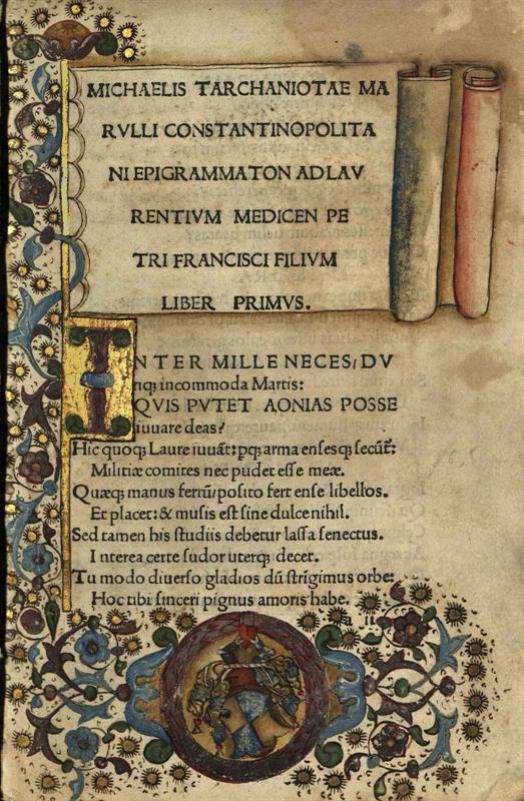 MICHAELIS TARCHANIOTAE MA
RVLLI CONSTANTINOPOLITA
NI EPIGRAMMATON AD LAV
RENTIVM MEDICEN PE
TRI FRANCISCI FILIVM
LIBER PRIMVS.
INTER MILLE NECES/DV
rıqꝫ incommoda Martis:
QVIS PVTET AONIAS POSSE
iuuare deas?
Hic quoqꝫ Laure iuuāt: pqꝫ arma ensesqꝫ secūt᷑:
Militiæ comites nec pudet esse meæ.
Quæqꝫ manus ferrū/posito fert ense libellos.
Et placet: & musis est sine dulce nihil.
Sed tamen his studiis debetur lassa senectus.
Interea certe sudor uterqꝫ decet.
Tu modo diuerso gladios dū strīgimus orbe:
Hoc tibi sinceri pignus amoris habe.
a ii